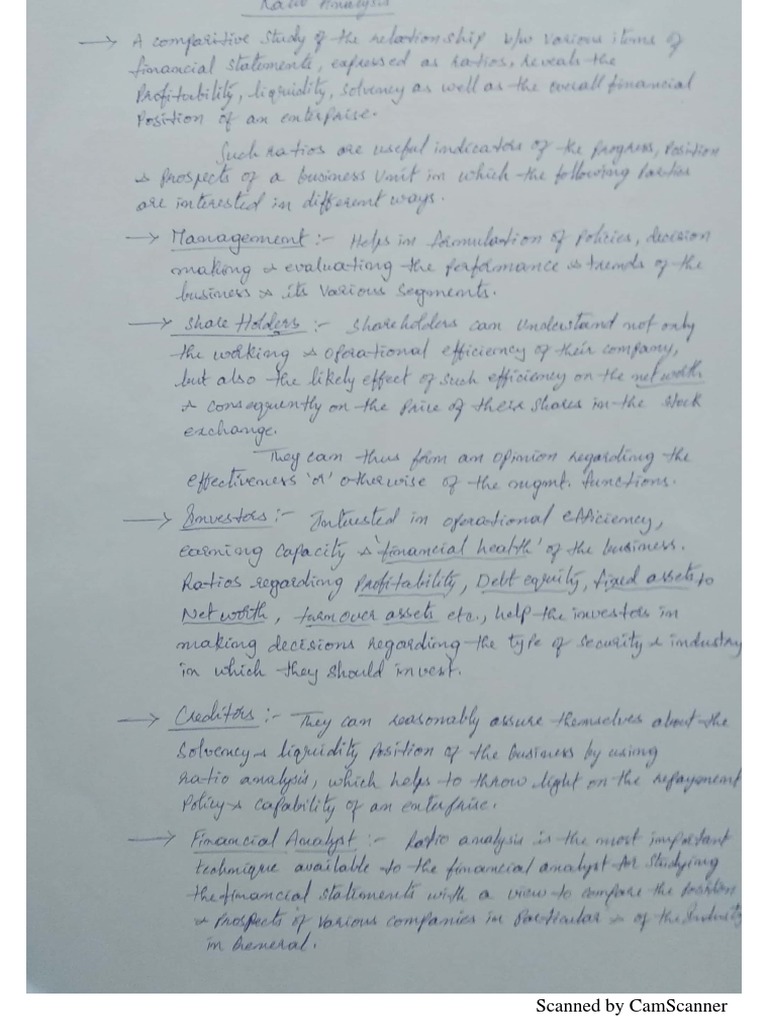 Ratio Analysis
→ A comparitive study of the relationship b/w various items of
financial statements, expressed as ratios, reveals the
Profitability, liquidity, solvency as well as the overall financial
Position of an enterprise.
Such ratios are useful indicators of the progress, position
& Prospects of a business unit in which the following Parties
are interested in different ways.
→ Management :- Helps in formulation of Policies, decision
making & evaluating the performance & trends of the
business & its various segments.
→ Share Holders :- Shareholders can understand not only
the working & operational efficiency of their company,
but also the likely effect of such efficiency on the net worth
& consequently on the Price of their shares in the stock
exchange.
They can thus form an opinion regarding the
effectiveness 'or' otherwise of the mgmt. functions.
→ Investors :- Interested in operational efficiency,
earning capacity & 'financial health' of the business.
Ratios regarding Profitability, Debt equity, fixed assets to
Net worth, turnover assets etc., help the investors in
making decisions regarding the type of security & industry
in which they should invest.
→ Creditors :- They can reasonably assure themselves about the
Solvency & liquidity Position of the business by using
ratio analysis, which helps to throw light on the repayment
Policy & capability of an enterprise.
→ Financial Analyst :- Ratio analysis is the most important
technique available to the financial analyst for studying
the financial statements with a view to compare the Position
& Prospects of various companies in Particular & of the Industry
in General.
Scanned by CamScanner